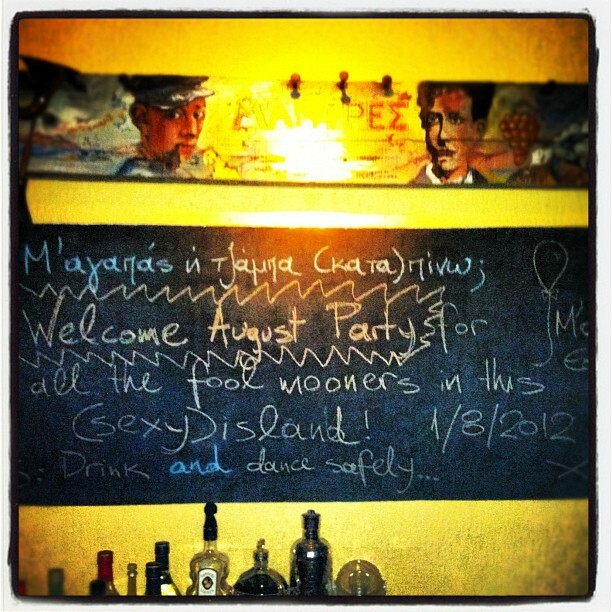 Μ'αγαπάς ή τζάμπα (κατα)πίνω;
Welcome August Party for
all the fool mooners in this
(sexy) island! 1/8/2012
Drink and dance safely...